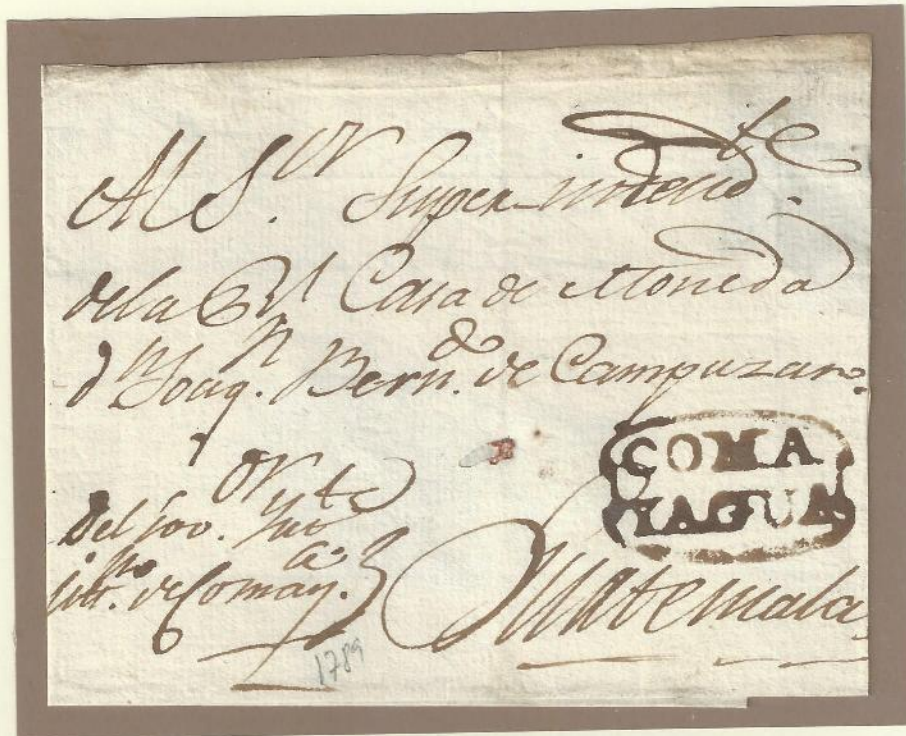 Al S.or Super-intend.te
dela Rl Casa de Moneda
dn Joaq.n Bern.do de Campuzano
COMA
YAGUA
del Gov.or Yntte
de Comay.a
Guatemala
1789